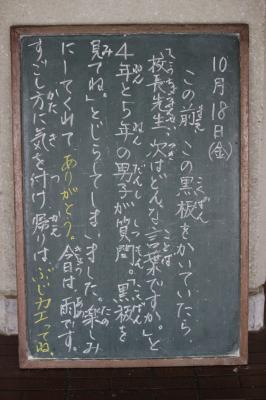 10月18日(金)
この前、この黒板をかいていたら、
「校長先生、次はどんな言葉ですか。」と
4年と5年の男子が質問。「黒板を
見てね。」とじらしてしまいました。楽しみ
にしてくれて ありがとう。今日は、雨です。
すごし方に気を付け、帰りは、ぶじカエってね。